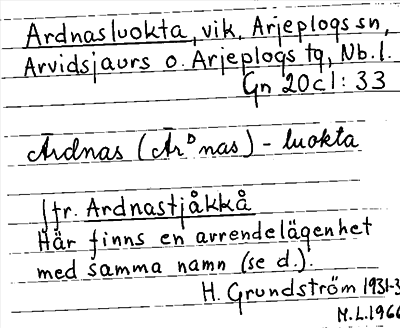 Ardnasluokta, vik, Arjeplogs sn,
Arvidsjaurs o. Arjeplogs tg, Nb.l.
Gn 20cl:33
Ārdnas (Ārᴰnas) - luokta
Jfr. Ardnastjåkkå
Här finns en arrendelägenhet
med samma namn (se d.).
H. Grundström 1931-3
M.L.1966